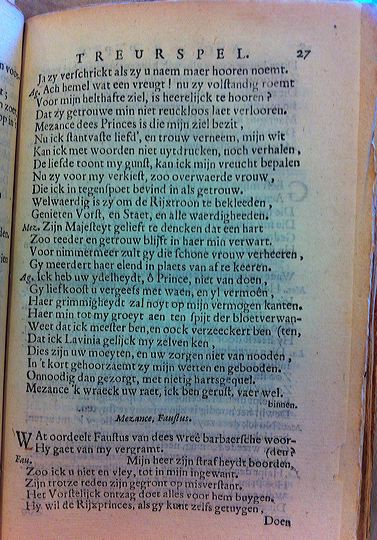 TREURSPEL. 27
Ja zy verschrickt als zy u naem maer hooren noemt.
Ag. Ach hemel wat een vreugt! nu zy volstandig roemt
Voor mijn helthafte ziel, is heerelijck te hooren?
Dat zy getrouwe min niet reuckloos laet verlooren.
Mezance dees Princes is die mijn ziel bezit,
Nu ick stantvaste liefd', en trouw verneem, mijn wit
Kan ick met woorden niet uytdrucken, noch verhalen,
De liefde toont my gunst, kan ick mijn vreucht bepalen
Nu zy voor my verkiest, zoo overwaerde vrouw,
Die ick in tegenspoet bevind in als getrouw.
Welwaerdig is zy om de Rijxtroon te bekleeden,
Genieten Vorst, en Staet, en alle waerdigheeden.
Mez. Zijn Majesteyt gelieft te dencken dat een hart
Zoo teeder en getrouw blijft in haer min verwart.
Voor nimmermeer zult gy die schone vrouw verheeren,
Gy meerdert haer elend in plaets van af te keeren.
Ag. Ick heb uw ydelheydt, ô Prince, niet van doen,
Gy liefkooft u vergeefs met waen, en yl vermoên,
Haer grimmigheydt zal noyt op mijn vermogen kanten.
Haer min tot my groeyt aen ten spijt der bloetverwan-
Weet dat ick meester ben, en oock verzeeckert ben (ten,
Dat ick Lavinia gelijck my zelven ken,
Dies zijn uw moeyten, en uw zorgen niet van nooden,
In 't kort gehoorzaemt zy mijn wetten en gebooden.
Onnoodig dan gezorgt, met nietig hartsgequel.
Mezance 'k wraeck uw raet, ick ben gerust, vaer wel.
binnen.
Mezance, Faustus.
WAt oordeelt Faustus van dees wreê barbaersche woor-
Hy gaet van my vergramt. (den?
Fau. Mijn heer zijn strafheydt boorden,
Zoo ick u niet en vley, tot in mijn ingewant.
Zijn trotze reden zijn gegront op misverstant.
Het Vorstelijck ontzag doet alles voor hem buygen.
Hy wil de Rijxprinces, als gy kunt zelfs getuygen,
Doen